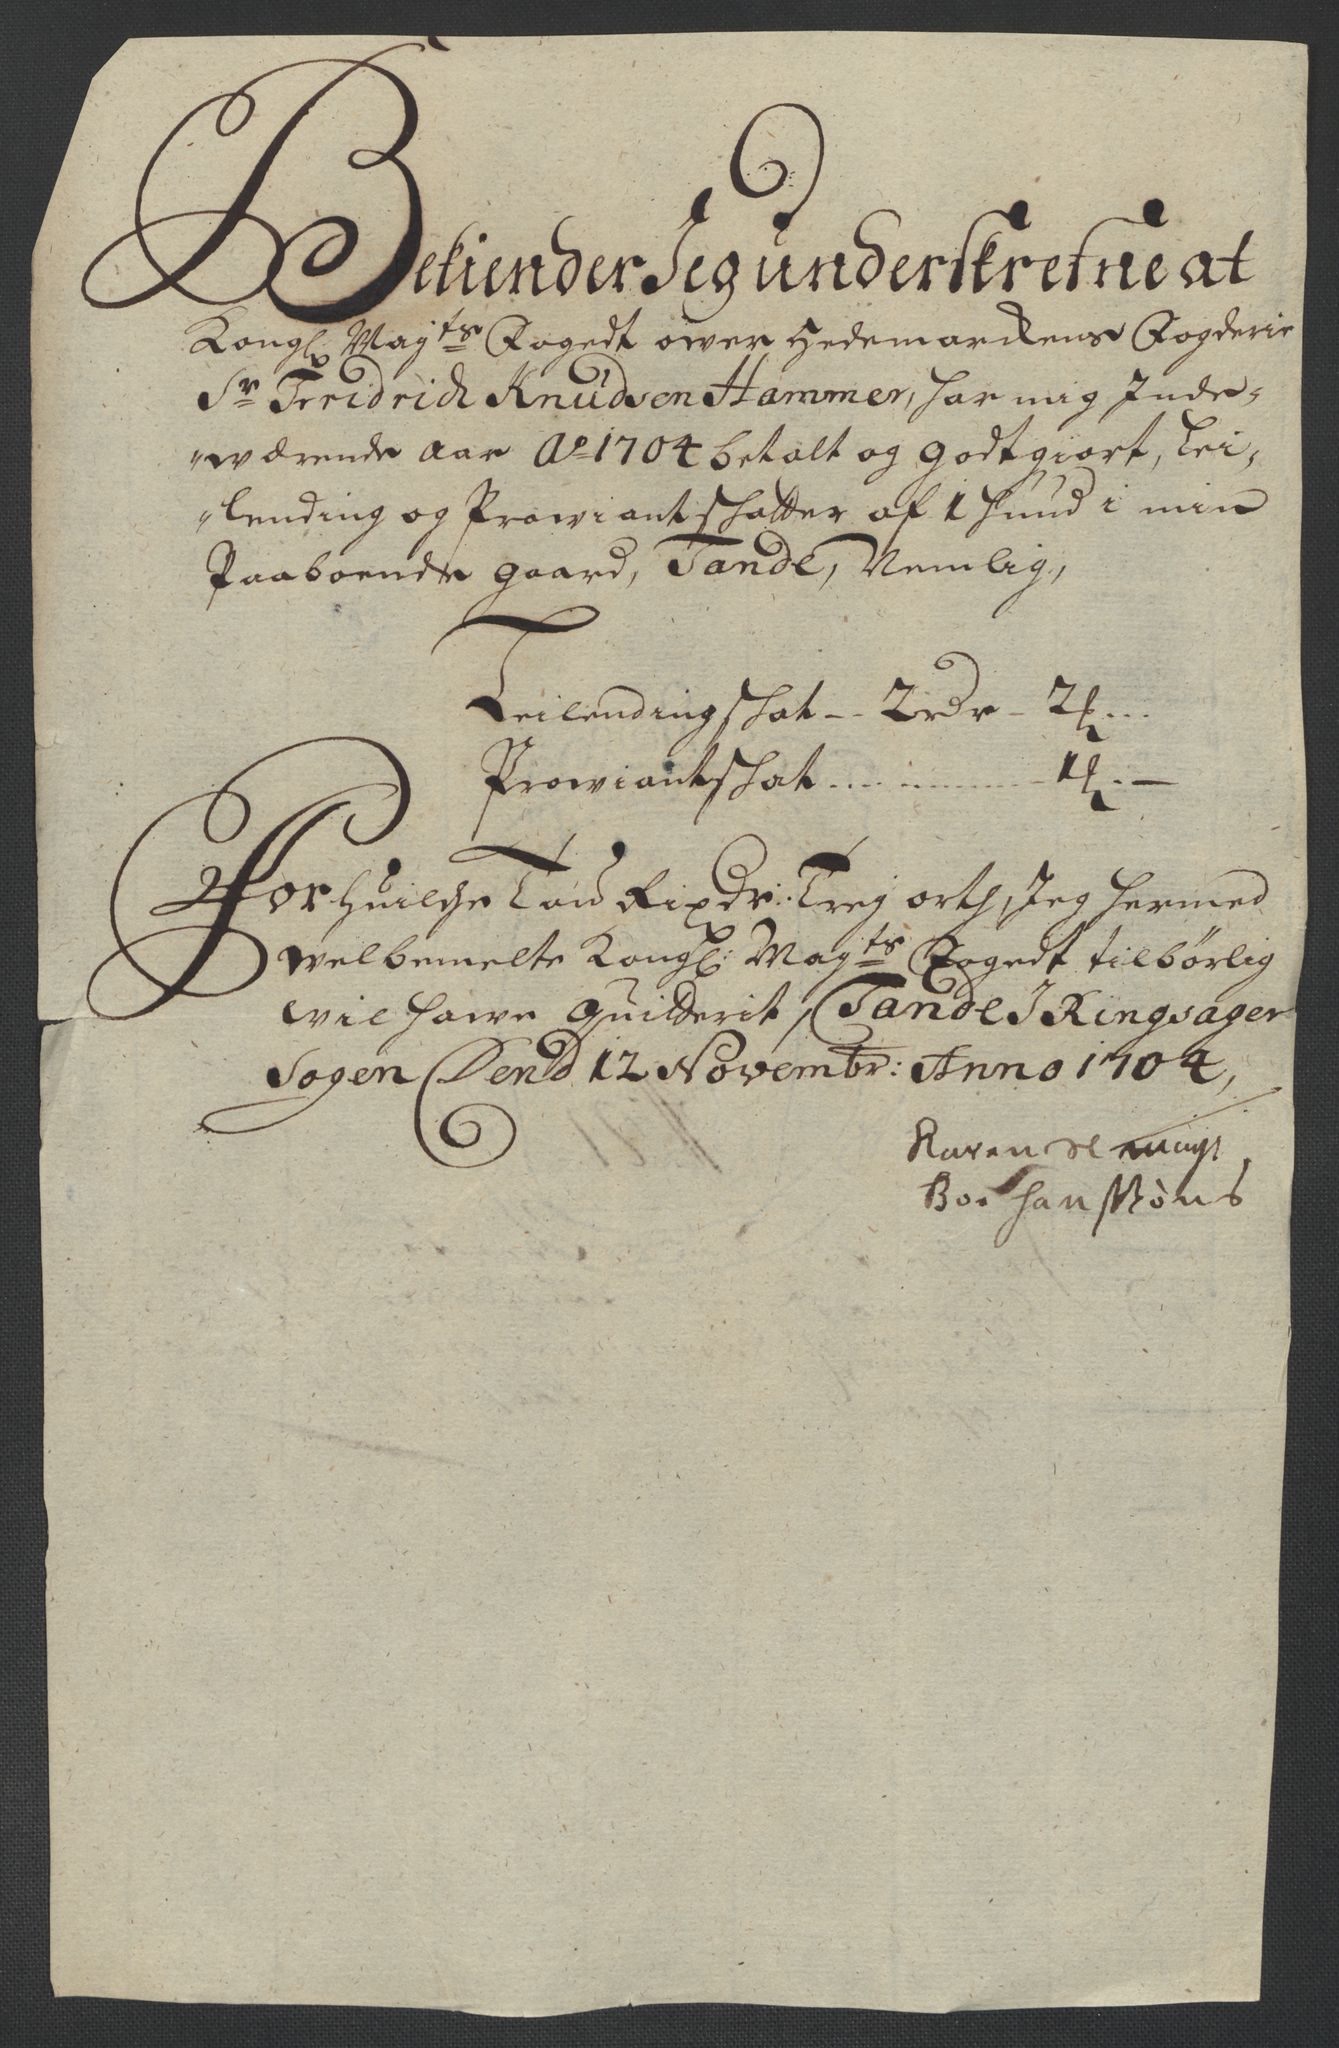 Bekiender Jeg underskrefne at
Kongl: Mayts Fogedt ower Hedemarckens Fogderie
Sr Fridrich Knudsen Hammer, har mig Inde-
werende Aar Ao 1704 betalt og godtgiort, Lei-
lending og Prowiant shatter af 1 hund i min
Paaboende gaard, Tande, Nemlig,
Leilending shat -- 2 rdr - 2 ...
Prowiant shat .... 1 .-
For huilche Tou Rixdr: Trej orth, Jeg hermed
welbemelte Kongl: Mayts Fogedt tilbørlig
wil hawe quitterit, Tande I Ringsager
Sogen Dend 12 Novembr: Anno 1704,
Karen
Boe hans